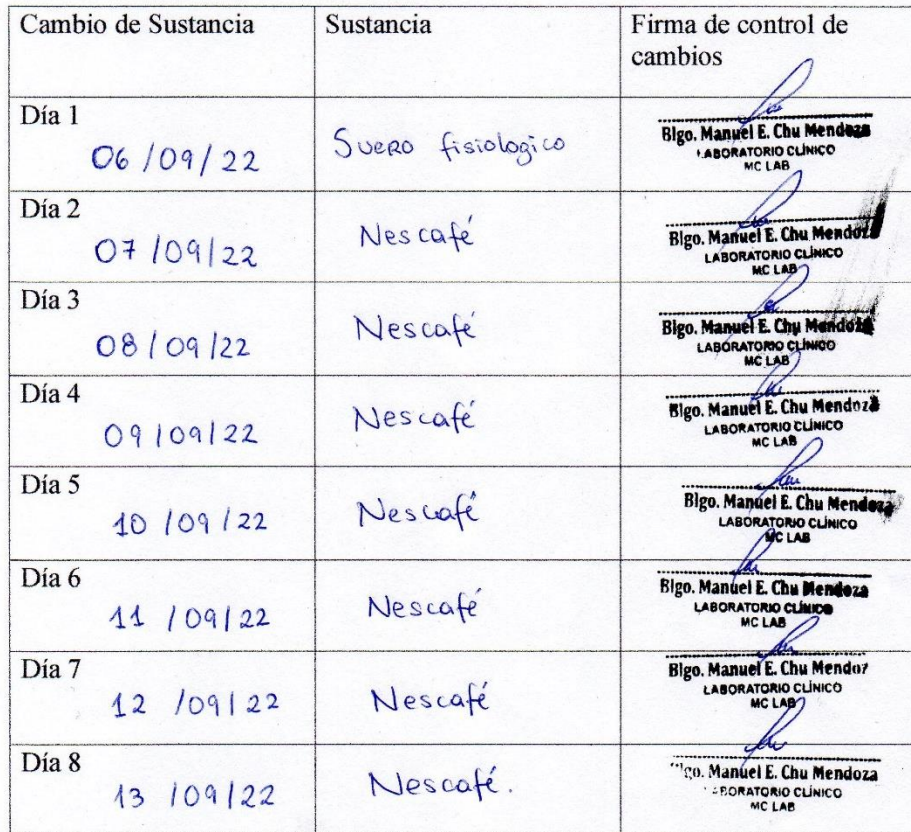 Cambio de Sustancia Sustancia Firma de control de
cambios
Día 1
06/09/22 Suero fisiologico
Blgo. Manuel E. Chu Mendoza
LABORATORIO CLÍNICO
MC LAB
Día 2
07/09/22 Nescafé
Blgo. Manuel E. Chu Mendoza
LABORATORIO CLÍNICO
MC LAB
Día 3
08/09/22 Nescafé
Blgo. Manuel E. Chu Mendoza
LABORATORIO CLÍNICO
MC LAB
Día 4
09/09/22 Nescafé
Blgo. Manuel E. Chu Mendoza
LABORATORIO CLÍNICO
MC LAB
Día 5
10/09/22 Nescafé
Blgo. Manuel E. Chu Mendoza
LABORATORIO CLÍNICO
MC LAB
Día 6
11/09/22 Nescafé
Blgo. Manuel E. Chu Mendoza
LABORATORIO CLÍNICO
MC LAB
Día 7
12/09/22 Nescafé
Blgo. Manuel E. Chu Mendoz
LABORATORIO CLÍNICO
MC LAB
Día 8
13/09/22 Nescafé.
Blgo. Manuel E. Chu Mendoza
LABORATORIO CLÍNICO
MC LAB